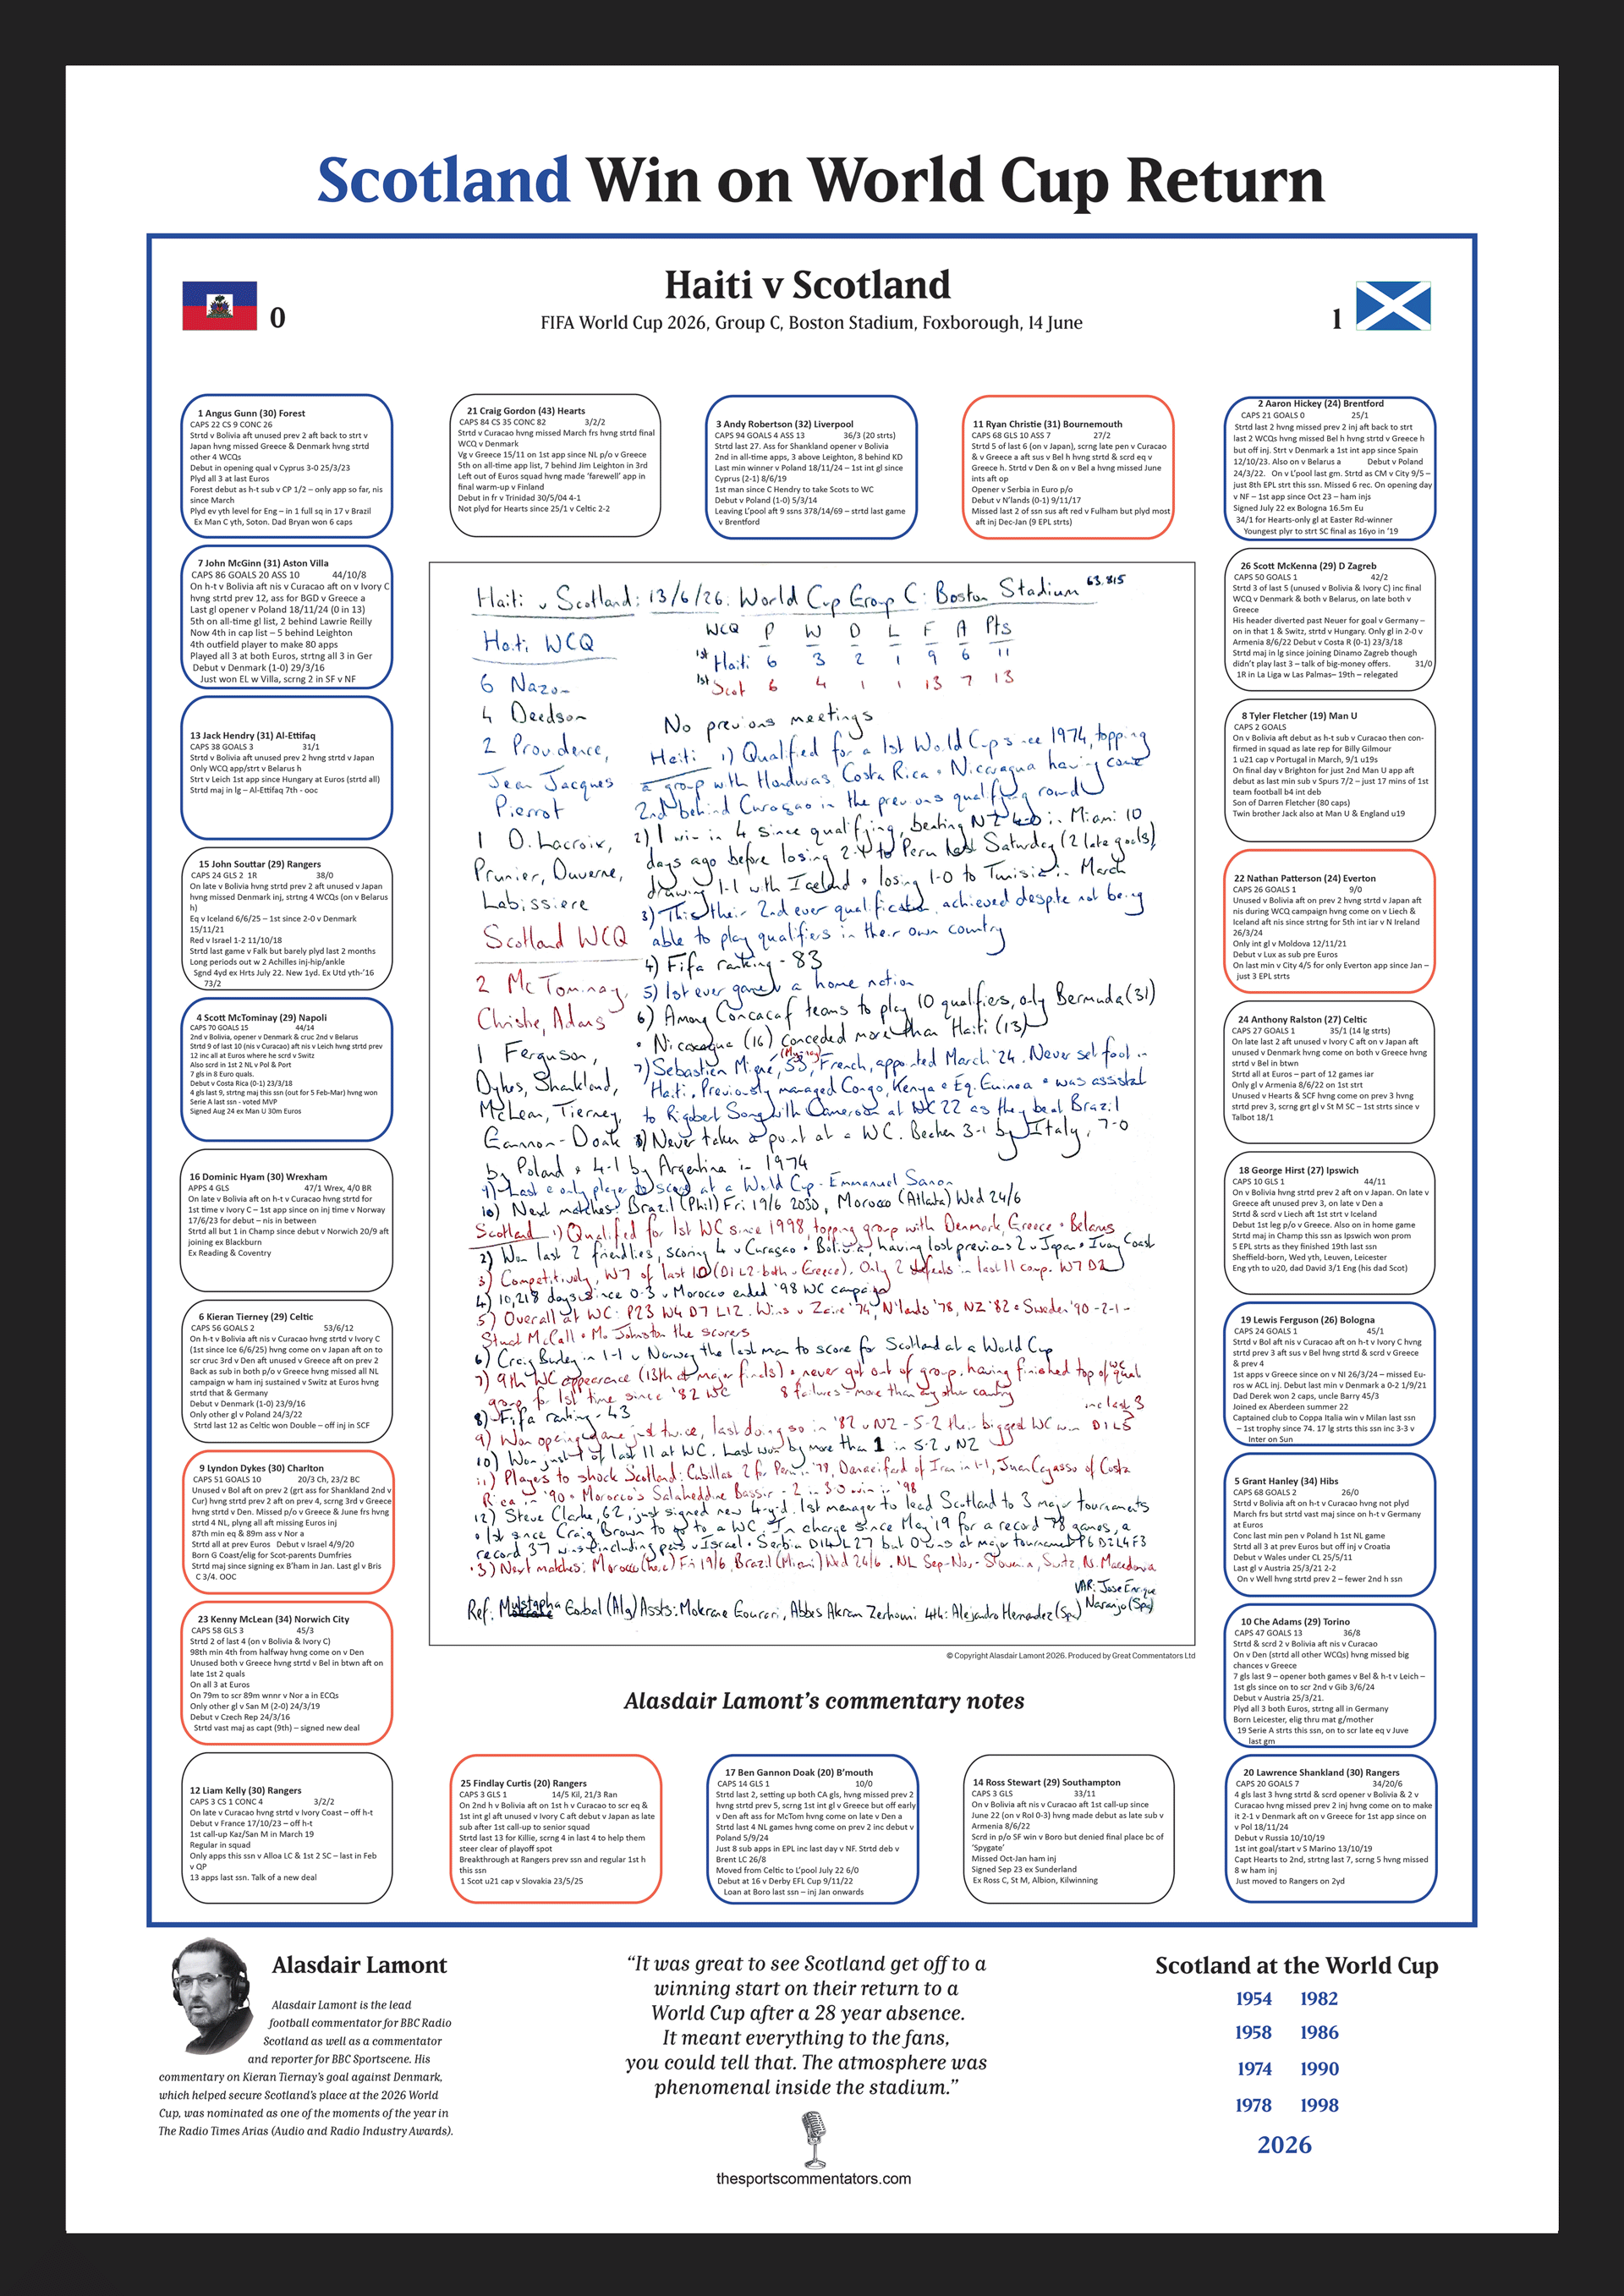 Scotland Win on World Cup Return
Haiti v Scotland
0
1
FIFA World Cup 2026, Group C, Boston Stadium, Foxborough, 14 June
1 Angus Gunn (30) Forest
CAPS 22 CS 9 CONC 26
Strtd v Bolivia aft unused prev 2 aft back to strt v
Japan hvng missed Greece & Denmark hvng strtd
other 4 WCQs
Debut in opening qual v Cyprus 3-0 25/3/23
Plyd all 3 at last Euros
Forest debut as h-t sub v CP 1/2 – only app so far, nis
since March
Plyd ev yth level for Eng – in 1 full sq in 17 v Brazil
Ex Man C yth, Soton. Dad Bryan won 6 caps
21 Craig Gordon (43) Hearts
CAPS 84 CS 35 CONC 82 3/2/2
Strtd v Curacao hvng missed March frs hvng strtd final
WCQ v Denmark
Vg v Greece 15/11 on 1st app since NL p/o v Greece
5th on all-time app list, 7 behind Jim Leighton in 3rd
Left out of Euros squad hvng made ‘farewell’ app in
final warm-up v Finland
Debut in fr v Trinidad 30/5/04 4-1
Not plyd for Hearts since 25/1 v Celtic 2-2
3 Andy Robertson (32) Liverpool
CAPS 94 GOALS 4 ASS 13 36/3 (20 strts)
Strtd last 27. Ass for Shankland opener v Bolivia
2nd in all-time apps, 3 above Leighton, 8 behind KD
Last min winner v Poland 18/11/24 – 1st int gl since
Cyprus (2-1) 8/6/19
1st man since C Hendry to take Scots to WC
Debut v Poland (1-0) 5/3/14
Leaving L’pool aft 9 ssns 378/14/69 – strtd last game
v Brentford
11 Ryan Christie (31) Bournemouth
CAPS 68 GLS 10 ASS 7 27/2
Strtd 5 of last 6 (on v Japan), scrng late pen v Curacao
& v Greece a aft sus v Bel h hvng strtd & scrd eq v
Greece h. Strtd v Den & on v Bel a hvng missed June
ints aft op
Opener v Serbia in Euro p/o
Debut v N’lands (0-1) 9/11/17
Missed last 2 of ssn sus aft red v Fulham but plyd most
aft inj Dec-Jan (9 EPL strts)
2 Aaron Hickey (24) Brentford
CAPS 21 GOALS 0 25/1
Strtd last 2 hvng missed prev 2 inj aft back to strt
last 2 WCQs hvng missed Bel h hvng strtd v Greece h
but off inj. Strt v Denmark a 1st int app since Spain
12/10/23. Also on v Belarus a Debut v Poland
24/3/22. On v L’pool last gm. Strtd as CM v City 9/5 –
just 8th EPL strt this ssn. Missed 6 rec. On opening day
v NF – 1st app since Oct 23 – ham injs
Signed July 22 ex Bologna 16.5m Eu
34/1 for Hearts-only gl at Easter Rd-winner
Youngest plyr to strt SC final as 16yo in ’19
7 John McGinn (31) Aston Villa
CAPS 86 GOALS 20 ASS 10 44/10/8
On h-t v Bolivia aft nis v Curacao aft on v Ivory C
hvng strtd prev 12, ass for BGD v Greece a
Last gl opener v Poland 18/11/24 (0 in 13)
5th on all-time gl list, 2 behind Lawrie Reilly
Now 4th in cap list – 5 behind Leighton
4th outfield player to make 80 apps
Played all 3 at both Euros, strtng all 3 in Ger
Debut v Denmark (1-0) 29/3/16
Just won EL w Villa, scrng 2 in SF v NF
13 Jack Hendry (31) Al-Ettifaq
CAPS 38 GOALS 3 31/1
Strtd v Bolivia aft unused prev 2 hvng strtd v Japan
Only WCQ app/strt v Belarus h
Strt v Leich 1st app since Hungary at Euros (strtd all)
Strtd maj in lg – Al-Ettifaq 7th - ooc
15 John Souttar (29) Rangers
CAPS 24 GLS 2 1R 38/0
On late v Bolivia hvng strtd prev 2 aft unused v Japan
hvng missed Denmark inj, strtng 4 WCQs (on v Belarus
h)
Eq v Iceland 6/6/25 – 1st since 2-0 v Denmark
15/11/21
Red v Israel 1-2 11/10/18
Strtd last game v Falk but barely plyd last 2 months
Long periods out w 2 Achilles inj-hip/ankle
Sgnd 4yd ex Hrts July 22. New 1yd. Ex Utd yth-’16
73/2
4 Scott McTominay (29) Napoli
CAPS 70 GOALS 15 44/14
2nd v Bolivia, opener v Denmark & cruc 2nd v Belarus
Strtd 9 of last 10 (nis v Curacao) aft nis v Leich hvng strtd prev
12 inc all at Euros where he scrd v Switz
Also scrd in 1st 2 NL v Pol & Port
7 gls in 8 Euro quals.
Debut v Costa Rica (0-1) 23/3/18
4 gls last 9, strtng maj this ssn (out for 5 Feb-Mar) hvng won
Serie A last ssn - voted MVP
Signed Aug 24 ex Man U 30m Euros
16 Dominic Hyam (30) Wrexham
APPS 4 GLS 47/1 Wrex, 4/0 BR
On late v Bolivia aft on h-t v Curacao hvng strtd for
1st time v Ivory C – 1st app since on inj time v Norway
17/6/23 for debut – nis in between
Strtd all but 1 in Champ since debut v Norwich 20/9 aft
joining ex Blackburn
Ex Reading & Coventry
6 Kieran Tierney (29) Celtic
CAPS 56 GOALS 2 53/6/12
On h-t v Bolivia aft nis v Curacao hvng strtd v Ivory C
(1st since Ice 6/6/25) hvng come on v Japan aft on to
scr cruc 3rd v Den aft unused v Greece aft on prev 2
Back as sub in both p/o v Greece hvng missed all NL
campaign w ham inj sustained v Switz at Euros hvng
strtd that & Germany
Debut v Denmark (1-0) 23/9/16
Only other gl v Poland 24/3/22
Strtd last 12 as Celtic won Double – off inj in SCF
9 Lyndon Dykes (30) Charlton
CAPS 51 GOALS 10 20/3 Ch, 23/2 BC
Unused v Bol aft on prev 2 (grt ass for Shankland 2nd v
Cur) hvng strtd prev 2 aft on prev 4, scrng 3rd v Greece
hvng strtd v Den. Missed p/o v Greece & June frs hvng
strtd 4 NL, plyng all aft missing Euros inj
87th min eq & 89m ass v Nor a
Strtd all at prev Euros Debut v Israel 4/9/20
Born G Coast/elig for Scot-parents Dumfries
Strtd maj since signing ex B’ham in Jan. Last gl v Bris
C 3/4. OOC
23 Kenny McLean (34) Norwich City
CAPS 58 GLS 3 45/3
Strtd 2 of last 4 (on v Bolivia & Ivory C)
98th min 4th from halfway hvng come on v Den
Unused both v Greece hvng strtd v Bel in btwn aft on
late 1st 2 quals
On all 3 at Euros
On 79m to scr 89m wnnr v Nor a in ECQs
Only other gl v San M (2-0) 24/3/19
Debut v Czech Rep 24/3/16
Strtd vast maj as capt (9th) – signed new deal
12 Liam Kelly (30) Rangers
CAPS 3 CS 1 CONC 4 3/2/2
On late v Curacao hvng strtd v Ivory Coast – off h-t
Debut v France 17/10/23 – off h-t
1st call-up Kaz/San M in March 19
Regular in squad
Only apps this ssn v Alloa LC & 1st 2 SC – last in Feb
v QP
13 apps last ssn. Talk of a new deal
Haiti v Scotland: 13/6/26: World Cup Group C: Boston Stadium 63,815
Haiti WCQ
6 Nazon
4 Deedson
2 Providence,
Jean Jacques
Pierrot
1 D. Lacroix,
Prunier, Duverne,
Labissiere
Scotland WCQ
2 McTominay,
Christie, Adams
1 Ferguson,
Dykes, Shankland,
McLean, Tierney,
Gannon-Doak
WCQ P W D L F A Pts
1st Haiti 6 3 2 1 9 6 11
1st Scot 6 4 1 1 13 7 13
No previous meetings
Haiti 1) Qualified for a 1st World Cup since 1974, topping
a group with Honduras, Costa Rica & Nicaragua having come
2nd behind Curaçao in the previous qualifying round
2) 1 win in 4 since qualifying, beating NZ 4-0 in Miami 10
days ago before losing 2-1 to Peru last Saturday (2 late goals),
drawing 1-1 with Iceland & losing 1-0 to Tunisia in March
3) This their 2nd ever qualification, achieved despite not being
able to play qualifiers in their own country
4) Fifa ranking - 83
5) 1st ever game v a home nation
6) Among Concacaf teams to play 10 qualifiers, only Bermuda (31)
& Nicaragua (16) conceded more than Haiti (13)
7) Sebastien Migné, 53, French, appointed March '24. Never set foot in
Haiti. Previously managed Congo, Kenya & Eq. Guinea & was assistant
to Rigobert Song with Cameroon at WC 22 as they beat Brazil
8) Never taken a point at a WC. Beaten 3-1 by Italy, 7-0
by Poland & 4-1 by Argentina in 1974
9) Last & only player to score at a World Cup - Emmanuel Sanon
10) Next matches: Brazil (Phil) Fri 19/6 2030, Morocco (Atlanta) Wed 24/6
Scotland 1) Qualified for 1st WC since 1998, topping group with Denmark, Greece & Belarus
2) Won last 2 friendlies, scoring 4 v Curaçao & Bolivia, having lost previous 2 v Japan & Ivory Coast
3) Competitively, W7 of last 10 (D1 L2-both v Greece). Only 2 defeats in last 11 comp. W7 D2
4) 10,218 days since 0-3 v Morocco ended '98 WC campaign
5) Overall at WC: P23 W4 D7 L12. Wins v Zaire '74, N'lands '78, NZ '82 & Sweden '90 - 2-1 -
Stuart McCall & Mo Johnston the scorers
6) Craig Burley in 1-1 v Norway the last man to score for Scotland at a World Cup
7) 9th WC appearance (13th at major finals) & never got out of group, having finished top of WC qual
group for 1st time since '82 WC 8 failures - more than any other country
8) Fifa ranking - 43
9) Won opening game just twice, last doing so in '82 v NZ - 5-2 their biggest WC win
10) Won just 1 of last 11 at WC. Last won by more than 1 in 5-2 v NZ
11) Players to shock Scotland: Cubillas 2 for Peru in '78, Danaeifard of Iran in 1-1, Juan Cayasso of Costa
Rica in '90 & Morocco's Salaheddine Bassir - 2 in 3-0 win in '98
12) Steve Clarke, 62, just signed new 4-y-d. 1st manager to lead Scotland to 3 major tournaments
& 1st since Craig Brown to go to a WC. In charge since May '19 for a record 78 games, a
record 37 wins including pens v Israel & Serbia D14 L27 but 0 wins at major tournament P6 D2 L4 F3
13) Next matches: Morocco Fri 19/6, Brazil (Miami) Wed 24/6. NL Sep-Nov - Slovenia, Switz, N. Macedonia
VAR: Jose Enrique
Naranjo (Spa)
Ref: Mustapha Gorbal (Alg) Assts: Mokrane Gourari, Abbes Akram Zerhouni 4th: Alejandro Hernandez (Spa)
© Copyright Alasdair Lamont 2026. Produced by Great Commentators Ltd
Alasdair Lamont’s commentary notes
26 Scott McKenna (29) D Zagreb
CAPS 50 GOALS 1 42/2
Strtd 3 of last 5 (unused v Bolivia & Ivory C) inc final
WCQ v Denmark & both v Belarus, on late both v
Greece
His header diverted past Neuer for goal v Germany –
on in that 1 & Switz, strtd v Hungary. Only gl in 2-0 v
Armenia 8/6/22 Debut v Costa R (0-1) 23/3/18
Strtd maj in lg since joining Dinamo Zagreb though
didn’t play last 3 – talk of big-money offers. 31/0
1R in La Liga w Las Palmas– 19th – relegated
8 Tyler Fletcher (19) Man U
CAPS 2 GOALS
On v Bolivia aft debut as h-t sub v Curacao then con-
firmed in squad as late rep for Billy Gilmour
1 u21 cap v Portugal in March, 9/1 u19s
On final day v Brighton for just 2nd Man U app aft
debut as last min sub v Spurs 7/2 – just 17 mins of 1st
team football b4 int deb
Son of Darren Fletcher (80 caps)
Twin brother Jack also at Man U & England u19
22 Nathan Patterson (24) Everton
CAPS 26 GOALS 1 9/0
Unused v Bolivia aft on prev 2 hvng strtd v Japan aft
nis during WCQ campaign hvng come on v Liech &
Iceland aft nis since strtng for 5th int iar v N Ireland
26/3/24
Only int gl v Moldova 12/11/21
Debut v Lux as sub pre Euros
On last min v City 4/5 for only Everton app since Jan –
just 3 EPL strts
24 Anthony Ralston (27) Celtic
CAPS 27 GOALS 1 35/1 (14 lg strts)
On late last 2 aft unused v Ivory C aft on v Japan aft
unused v Denmark hvng come on both v Greece hvng
strtd v Bel in btwn
Strtd all at Euros – part of 12 games iar
Only gl v Armenia 8/6/22 on 1st strt
Unused v Hearts & SCF hvng come on prev 3 hvng
strtd prev 3, scrng grt gl v St M SC – 1st strts since v
Talbot 18/1
18 George Hirst (27) Ipswich
CAPS 10 GLS 1 44/11
On v Bolivia hvng strtd prev 2 aft on v Japan. On late v
Greece aft unused prev 3, on late v Den a
Strtd & scrd v Liech aft 1st strt v Iceland
Debut 1st leg p/o v Greece. Also on in home game
Strtd maj in Champ this ssn as Ipswich won prom
5 EPL strts as they finished 19th last ssn
Sheffield-born, Wed yth, Leuven, Leicester
Eng yth to u20, dad David 3/1 Eng (his dad Scot)
19 Lewis Ferguson (26) Bologna
CAPS 24 GOALS 1 45/1
Strtd v Bol aft nis v Curacao aft on h-t v Ivory C hvng
strtd prev 3 aft sus v Bel hvng strtd & scrd v Greece
& prev 4
1st apps v Greece since on v NI 26/3/24 – missed Eu-
ros w ACL inj. Debut last min v Denmark a 0-2 1/9/21
Dad Derek won 2 caps, uncle Barry 45/3
Joined ex Aberdeen summer 22
Captained club to Coppa Italia win v Milan last ssn
– 1st trophy since 74. 17 lg strts this ssn inc 3-3 v
Inter on Sun
5 Grant Hanley (34) Hibs
CAPS 68 GOALS 2 26/0
Strtd v Bolivia aft on h-t v Curacao hvng not plyd
March frs but strtd vast maj since on h-t v Germany
at Euros
Conc last min pen v Poland h 1st NL game
Strtd all 3 at prev Euros but off inj v Croatia
Debut v Wales under CL 25/5/11
Last gl v Austria 25/3/21 2-2
On v Well hvng strtd prev 2 – fewer 2nd h ssn
10 Che Adams (29) Torino
CAPS 47 GOALS 13 36/8
Strtd & scrd 2 v Bolivia aft nis v Curacao
On v Den (strtd all other WCQs) hvng missed big
chances v Greece
7 gls last 9 – opener both games v Bel & h-t v Leich –
1st gls since on to scr 2nd v Gib 3/6/24
Debut v Austria 25/3/21.
Plyd all 3 both Euros, strtng all in Germany
Born Leicester, elig thru mat g/mother
19 Serie A strts this ssn, on to scr late eq v Juve
last gm
25 Findlay Curtis (20) Rangers
CAPS 3 GLS 1 14/5 Kil, 21/3 Ran
On 2nd h v Bolivia aft on 1st h v Curacao to scr eq &
1st int gl aft unused v Ivory C aft debut v Japan as late
sub after 1st call-up to senior squad
Strtd last 13 for Killie, scrng 4 in last 4 to help them
steer clear of playoff spot
Breakthrough at Rangers prev ssn and regular 1st h
this ssn
1 Scot u21 cap v Slovakia 23/5/25
17 Ben Gannon Doak (20) B’mouth
CAPS 14 GLS 1 10/0
Strtd last 2, setting up both CA gls, hvng missed prev 2
hvng strtd prev 5, scrng 1st int gl v Greece but off early
v Den aft ass for McTom hvng come on late v Den a
Strtd last 4 NL games hvng come on prev 2 inc debut v
Poland 5/9/24
Just 8 sub apps in EPL inc last day v NF. Strtd deb v
Brent LC 26/8
Moved from Celtic to L’pool July 22 6/0
Debut at 16 v Derby EFL Cup 9/11/22
Loan at Boro last ssn – inj Jan onwards
14 Ross Stewart (29) Southampton
CAPS 3 GLS 33/11
On v Bolivia aft nis v Curacao aft 1st call-up since
June 22 (on v RoI 0-3) hvng made debut as late sub v
Armenia 8/6/22
Scrd in p/o SF win v Boro but denied final place bc of
‘Spygate’
Missed Oct-Jan ham inj
Signed Sep 23 ex Sunderland
Ex Ross C, St M, Albion, Kilwinning
20 Lawrence Shankland (30) Rangers
CAPS 20 GOALS 7 34/20/6
4 gls last 3 hvng strtd & scrd opener v Bolivia & 2 v
Curacao hvng missed prev 2 inj hvng come on to make
it 2-1 v Denmark aft on v Greece for 1st app since on
v Pol 18/11/24
Debut v Russia 10/10/19
1st int goal/start v S Marino 13/10/19
Capt Hearts to 2nd, strtng last 7, scrng 5 hvng missed
8 w ham inj
Just moved to Rangers on 2yd
Alasdair Lamont
Alasdair Lamont is the lead
football commentator for BBC Radio
Scotland as well as a commentator
and reporter for BBC Sportscene. His
commentary on Kieran Tiernay’s goal against Denmark,
which helped secure Scotland’s place at the 2026 World
Cup, was nominated as one of the moments of the year in
The Radio Times Arias (Audio and Radio Industry Awards).
“It was great to see Scotland get off to a
winning start on their return to a
World Cup after a 28 year absence.
It meant everything to the fans,
you could tell that. The atmosphere was
phenomenal inside the stadium.”
thesportscommentators.com
Scotland at the World Cup
1954 1982
1958 1986
1974 1990
1978 1998
2026